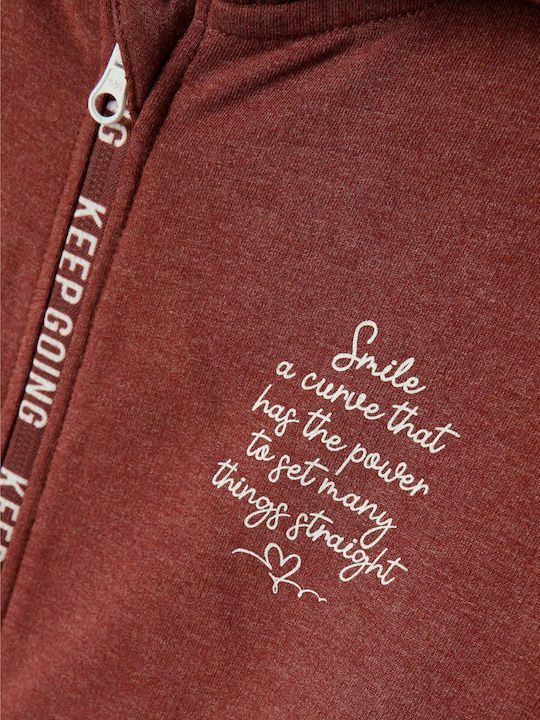 NG
KEEP GOING
KEEP
Smile
a curve that
has the power
to set many
things straight